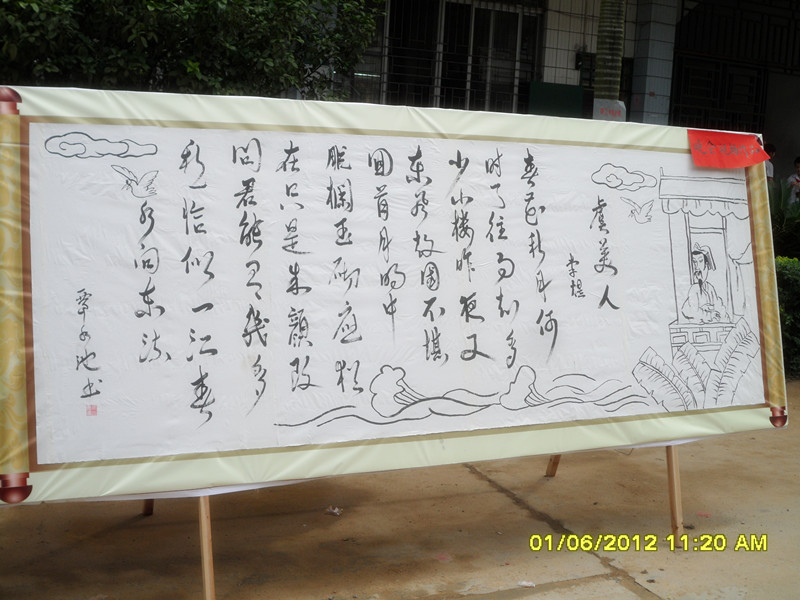 虞美人
李煜
春花秋月何
时了往事知多
少小楼昨夜又
东风故国不堪
回首月明中
雕欄玉砌应犹
在只是朱颜改
问君能有几多
愁恰似一江春
水向东流
01/06/2012 11:20 AM